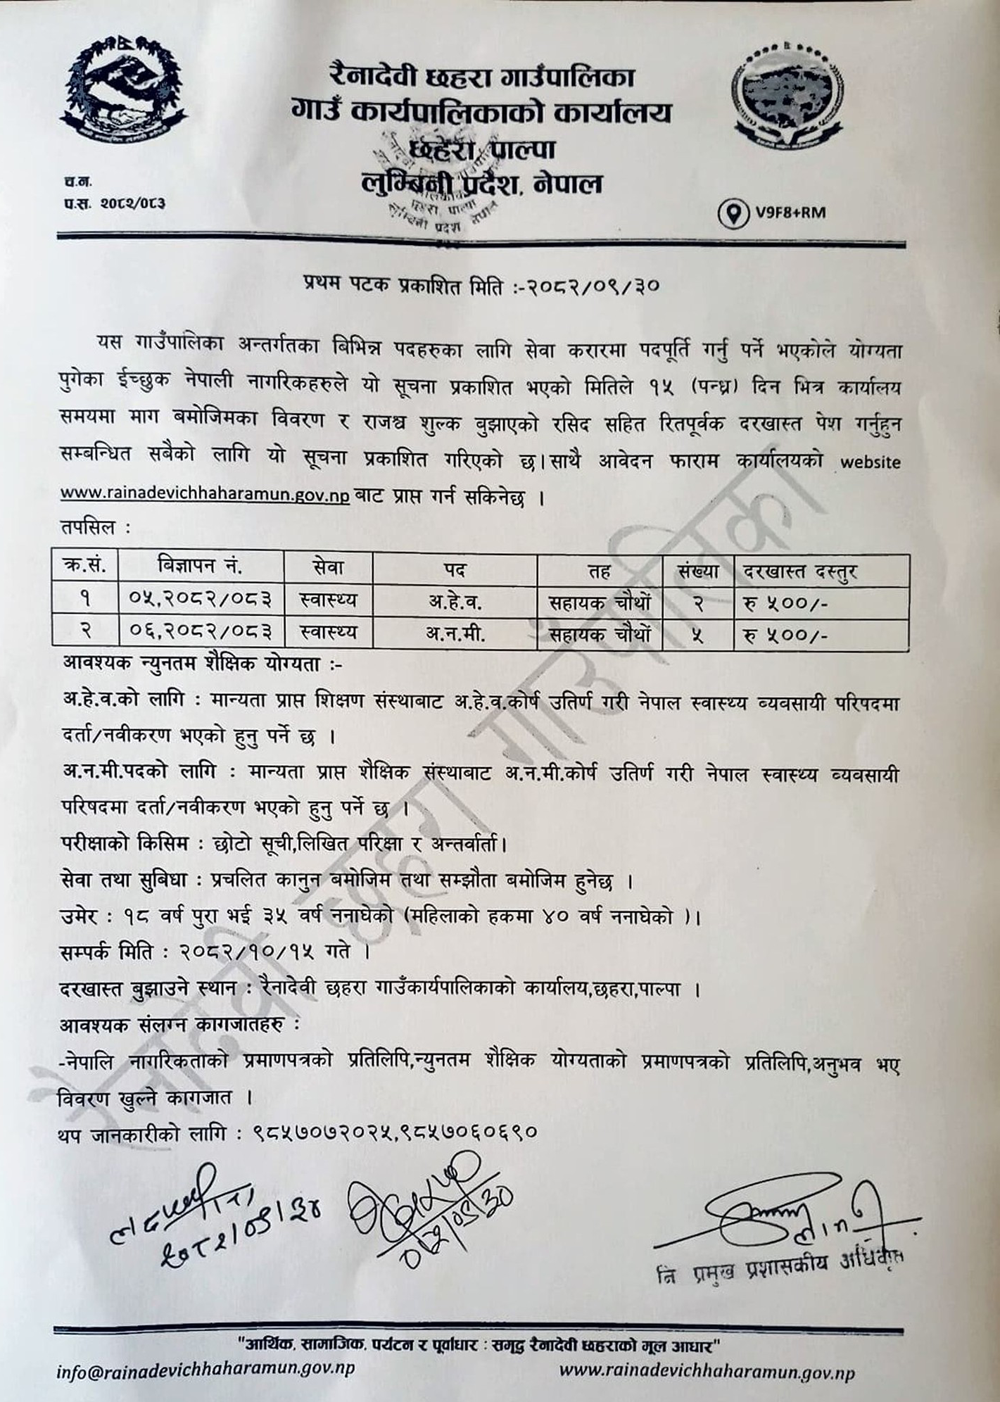 रैनादेवी छहरा गाउँपालिका
गाउँ कार्यपालिकाको कार्यालय
छहरा, पाल्पा
लुम्बिनी प्रदेश, नेपाल
च.न.
प.स. २०८२/०८३
V9F8+RM
प्रथम पटक प्रकाशित मिति :-२०८२/०९/३०
यस गाउँपालिका अन्तर्गतका बिभिन्न पदहरुका लागि सेवा करारमा पदपूर्ति गर्नु पर्ने भएकोले योग्यता
पुगेका ईच्छुक नेपाली नागरिकहरुले यो सूचना प्रकाशित भएको मितिले १५ (पन्ध्र) दिन भित्र कार्यालय
समयमा माग बमोजिमका विवरण र राजश्व शुल्क बुझाएको रसिद सहित रितपूर्वक दरखास्त पेश गर्नुहुन
सम्बन्धित सबैको लागि यो सूचना प्रकाशित गरिएको छ।साथै आवेदन फाराम कार्यालयको website
www.rainadevichhaharamun.gov.np बाट प्राप्त गर्न सकिनेछ ।
तपसिल :
क्र.सं. बिज्ञापन नं. सेवा पद तह संख्या दरखास्त दस्तुर
१ ०५,२०८२/०८३ स्वास्थ्य अ.हे.व. सहायक चौथों २ रु ५००/-
२ ०६,२०८२/०८३ स्वास्थ्य अ.न.मी. सहायक चौथों ५ रु ५००/-
आवश्यक न्युनतम शैक्षिक योग्यता :-
अ.हे.व.को लागि : मान्यता प्राप्त शिक्षण संस्थाबाट अ.हे.व.कोर्ष उतिर्ण गरी नेपाल स्वास्थ्य व्यवसायी परिषदमा
दर्ता/नवीकरण भएको हुनु पर्ने छ ।
अ.न.मी.पदको लागि : मान्यता प्राप्त शैक्षिक संस्थाबाट अ.न.मी.कोर्ष उतिर्ण गरी नेपाल स्वास्थ्य व्यवसायी
परिषदमा दर्ता/नवीकरण भएको हुनु पर्ने छ ।
परीक्षाको किसिम : छोटो सूची,लिखित परिक्षा र अन्तर्वार्ता।
सेवा तथा सुबिधा : प्रचलित कानुन बमोजिम तथा सम्झौता बमोजिम हुनेछ ।
उमेर : १८ वर्ष पुरा भई ३५ वर्ष ननाघेको (महिलाको हकमा ४० वर्ष ननाघेको )।
सम्पर्क मिति : २०८२/१०/१५ गते ।
दरखास्त बुझाउने स्थान : रैनादेवी छहरा गाउँकार्यपालिकाको कार्यालय,छहरा,पाल्पा ।
आवश्यक संलग्न कागजातहरु :
-नेपालि नागरिकताको प्रमाणपत्रको प्रतिलिपि,न्युनतम शैक्षिक योग्यताको प्रमाणपत्रको प्रतिलिपि,अनुभव भए
विवरण खुल्ने कागजात ।
थप जानकारीको लागि : ९८५७०७२०२५,९८५७०६०६९०
नि प्रमुख प्रशासकीय अधिकृत
रैनादेवी छहरा गाउँपालिका
"आर्थिक, सामाजिक, पर्यटन र पूर्वाधार : समृद्ध रैनादेवी छहराको मूल आधार"
info@rainadevichhaharamun.gov.np www.rainadevichhaharamun.gov.np